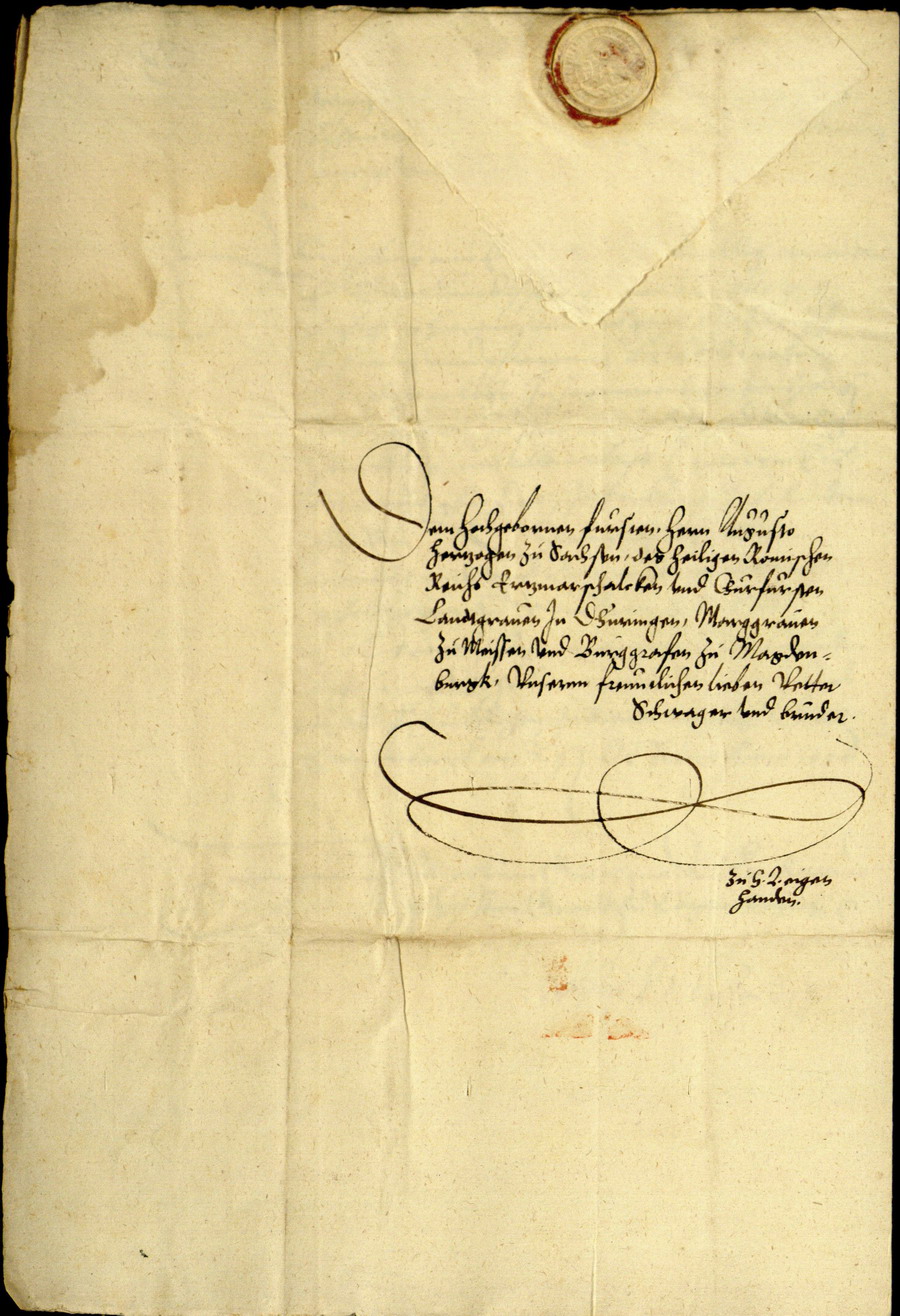 Dem hochgebornen fursten, hern Augusto
Hertzogen zu Sachssen, des heiligen Romischen
Reichs Ertzmarschalcken und Curfursten
Landgrauen In Dhuringen, Marggrauen
zu Meissen und Burggrafen zu Magden-
burgk, Unserm freuntlichen lieben Vetter
Schwager und bruder.
Zu S. L. eigen
handen.